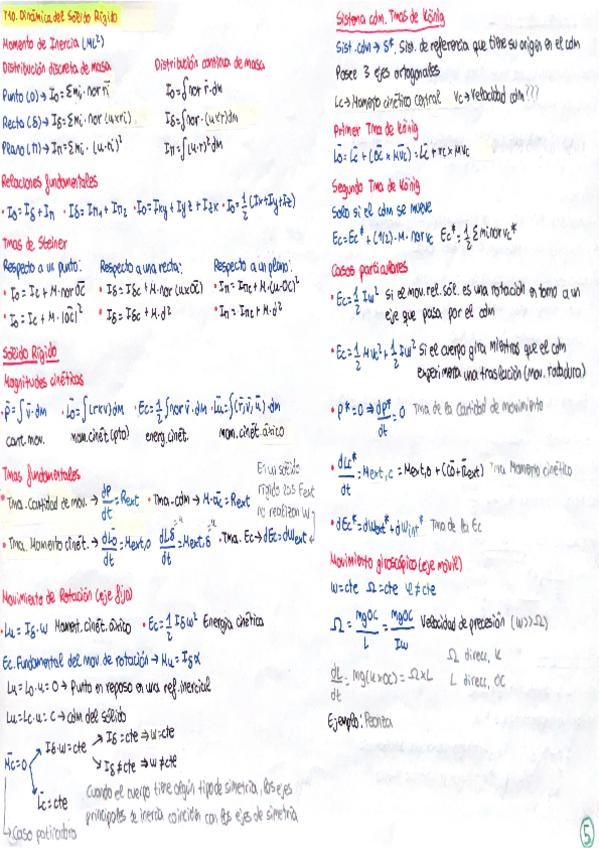 T10. Dinámica del Sólido Rígido
Momento de Inercia (ML²)
Distribución discreta de masa
Distribución continua de masa
Punto (O) → I₀ = Σmᵢ · nor r̄ᵢ
I₀ = ∫nor r̄ · dm
Recta (δ) → Iδ = Σmᵢ · nor (u×rᵢ)
Iδ = ∫nor · (u×r)dm
Plano (π) → Iπ = Σmᵢ · (u·rᵢ)²
Iπ = ∫(u·r)² dm
Relaciones fundamentales
· I₀ = Iδ + Iπ · Iδ = Iπ₁ + Iπ₂ · I₀ = Ixy + Iyz + Izx · I₀ = 1/2 (Ix+Iy+Iz)
Tmas de Steiner
Respecto a un punto: Respecto a una recta: Respecto a un plano:
· I₀ = Ic + M·nor OC · Iδ = Iδc + M·nor (u×OC) · Iπ = Iπc + M·(u·OC)²
· I₀ = Ic + M·|OC|² · Iδ = Iδc + M·d² · Iπ = Iπc + M·d²
Sólido Rígido
Magnitudes cinéticas
· P̄ = ∫v̄·dm · L̄₀ = ∫(r×v)dm · Ec = 1/2 ∫nor v̄·dm · Lu = ∫(r̄, v̄, ū)·dm
cant. mov. mom. cinét (pto) energ. cinét. mom. cinét. áxico
Tmas fundamentales
En un sólido
rígido las Fext
no realizan W
· Tma. Cantidad de mov. → dP/dt = Rext · Tma. cdm → M·āc = Rext
· Tma. Momento cinét. → dL̄₀/dt = Mext,o dLδ/dt = Mext,δ · Tma. Ec → dEc = dWext
Movimiento de Rotación (eje fijo)
· Lu = Iδ·w Moment. cinét. áxico · Ec = 1/2 Iδw² Energía cinética
Ec. Fundamental del mov. de rotación → Mu = Iδα
Lu = L₀·u = 0 → Punto en reposo en una ref. inercial
Lu = Lc·u = C → cdm del sólido
M̄c = 0
Iδ·w = cte
Iδ = cte ⇒ w = cte
Iδ ≠ cte ⇒ w ≠ cte
L̄c = cte
Cuando el cuerpo tiene algún tipo de simetría, los ejes
principales de inercia coinciden con los ejes de simetría
Caso patinadora
Sistema cdm. Tmas de König
Sist. cdm → S*. Sist. de referencia que tiene su origen en el cdm
Posee 3 ejes ortogonales
Lc → Momento cinético central Vc → Velocidad cdm???
Primer Tma de König
L̄₀ = L̄c + (OC × Mv̄c) = L̄c + rc × Mvc
Segundo Tma de König
Solo si el cdm se mueve
Ec = Ec* + (1/2)·M·nor vc Ec* = 1/2 Σmᵢ nor vᵢ*
Casos particulares
· Ec = 1/2 Iw² si el mov. rel. sól. es una rotación en torno a un
eje que pasa por el cdm
· Ec = 1/2 Mvc² + 1/2 Iw² Si el cuerpo gira mientras que el cdm
experimenta una traslación (mov. rodadura)
· P* = 0 ⇒ dP*/dt = 0 Tma de la cantidad de movimiento
· dLc*/dt = Mext,c = Mext,o + (CO × Rext) Tma Momento cinético
· dEc* = dWext* + dWint* Tma de la Ec
Movimiento giroscópico (eje móvil)
w = cte Ω = cte φ ≠ cte
Ω = mgOC/L = mgOC/Iw Velocidad de precesión (w>>Ω)
Ω direcc, K
dL/dt = mg(k×OC) = Ω×L
L direcc, OC
Ejemplo: Peonza
5